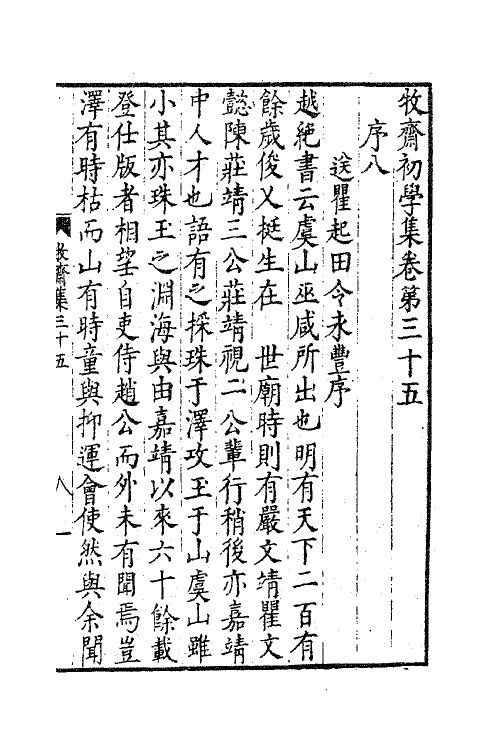 牧齋初學集卷第三十五
序八
送瞿起田令永豐序
越絶書云虞山巫咸所出也明有天下二百有
餘歲俊乂挺生在　世廟時則有嚴文靖瞿文
懿陳莊靖三公莊靖視二公軰行稍後亦嘉靖
中人才也語有之採珠于澤攻玉于山虞山雖
小其亦珠玉之淵海與由嘉靖以來六十餘載
登仕版者相望自吏侍趙公而外未有聞焉豈
澤有時枯而山有時童與抑運會使然與余聞
牧齋集三十五
八
一